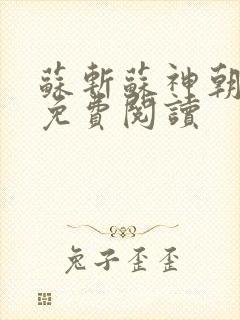 蘇斬蘇神朝
免費閱讀
兔子歪歪